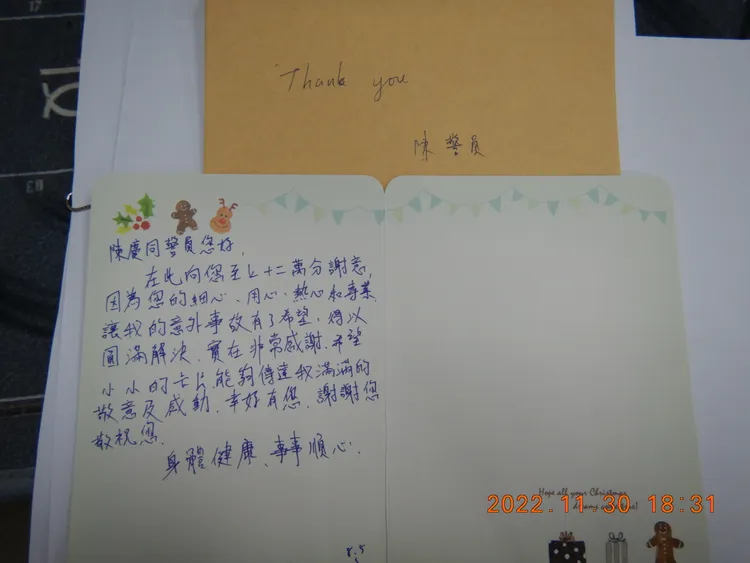 Thank you
陳警員
陳慶同警員您好,
在此向您至上十二萬分謝意,
因為您的細心、用心、熱心和專業
讓我的意外事故有了希望,得以
圓滿解決.實在非常感謝.希望
小小的卡片.能夠傳達我滿滿的
敬意及感動.幸好有您.謝謝您
敬祝您.
身體健康、事事順心.
Hope all your Christmas
2022.11.30 18:31